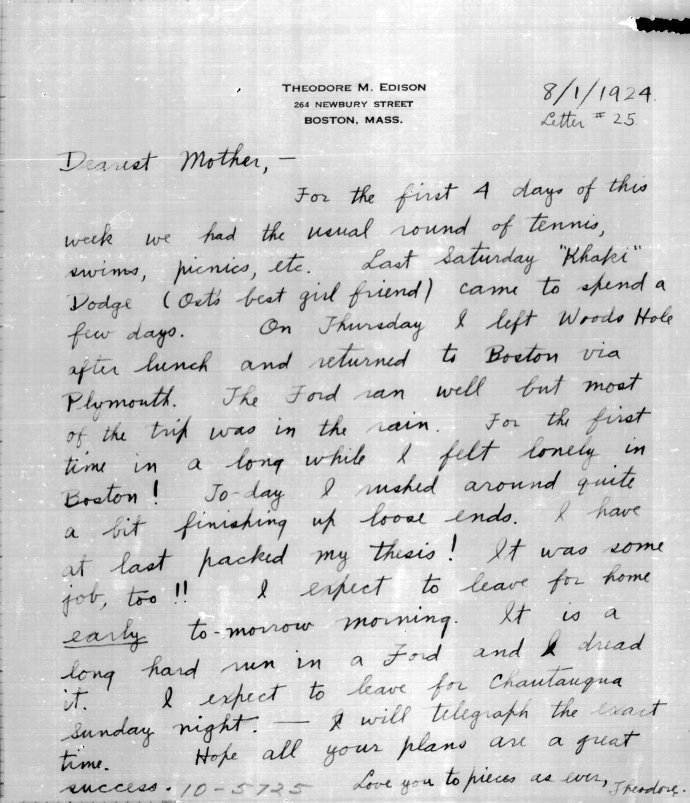 THEODORE M. EDISON
264 NEWBURY STREET
BOSTON, MASS.
8/1/1924.
Letter # 25
Dearest Mother, —
For the first 4 days of this
week we had the usual round of tennis,
swims, picnics, etc. Last Saturday "Khaki"
Dodge (Ost's best girl friend) came to spend a
few days. On Thursday I left Woods Hole
after lunch and returned to Boston via
Plymouth. The Ford ran well but most
of the trip was in the rain. For the first
time in a long while I felt lonely in
Boston! To-day I rushed around quite
a bit finishing up loose ends. I have
at last packed my thesis! It was some
job, too!! I expect to leave for home
early to-morrow morning. It is a
long hard run in a Ford and I dread
it. I expect to leave for Chautauqua
Sunday night. — I will telegraph the exact
time. Hope all your plans are a great
success. 10-5725 Love you to pieces as ever, Theodore.